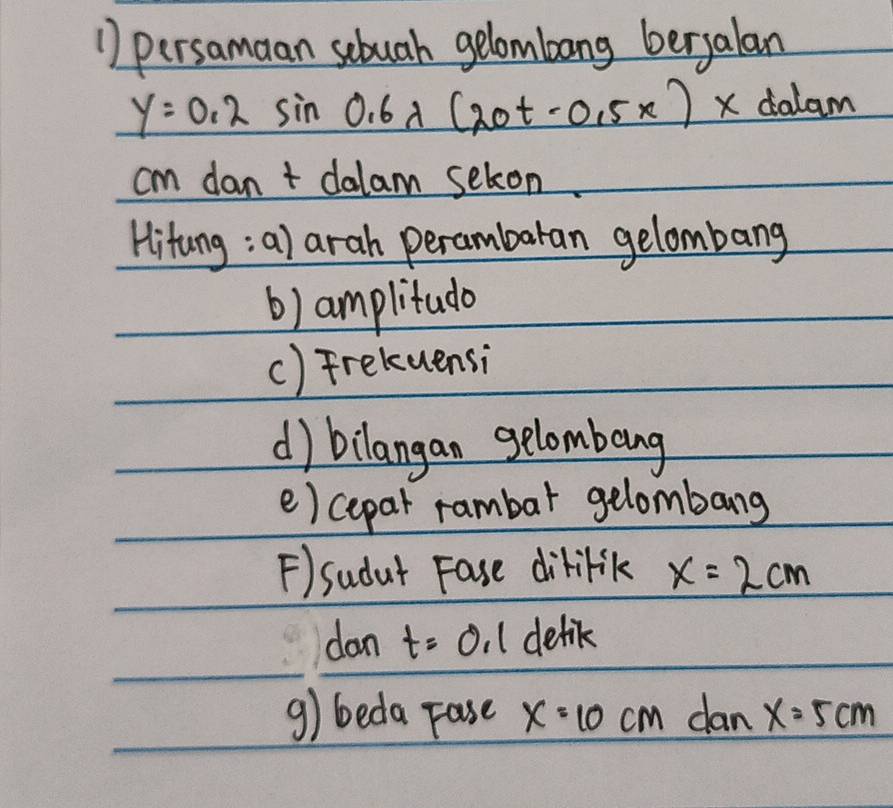 1) persamaan sebuah gelombang berjalan
y = 0.2 sin 0.6 λ (20t - 0,5x) x dalam
cm dan t dalam sekon.
Hitung : a) arah perambatan gelombang
b) amplitudo
c) Frekuensi
d) bilangan gelombang
e) cepat rambat gelombang
F) sudut Fase dititik x = 2 cm
dan t = 0.1 detik
g) beda Fase x = 10 cm dan x = 5 cm